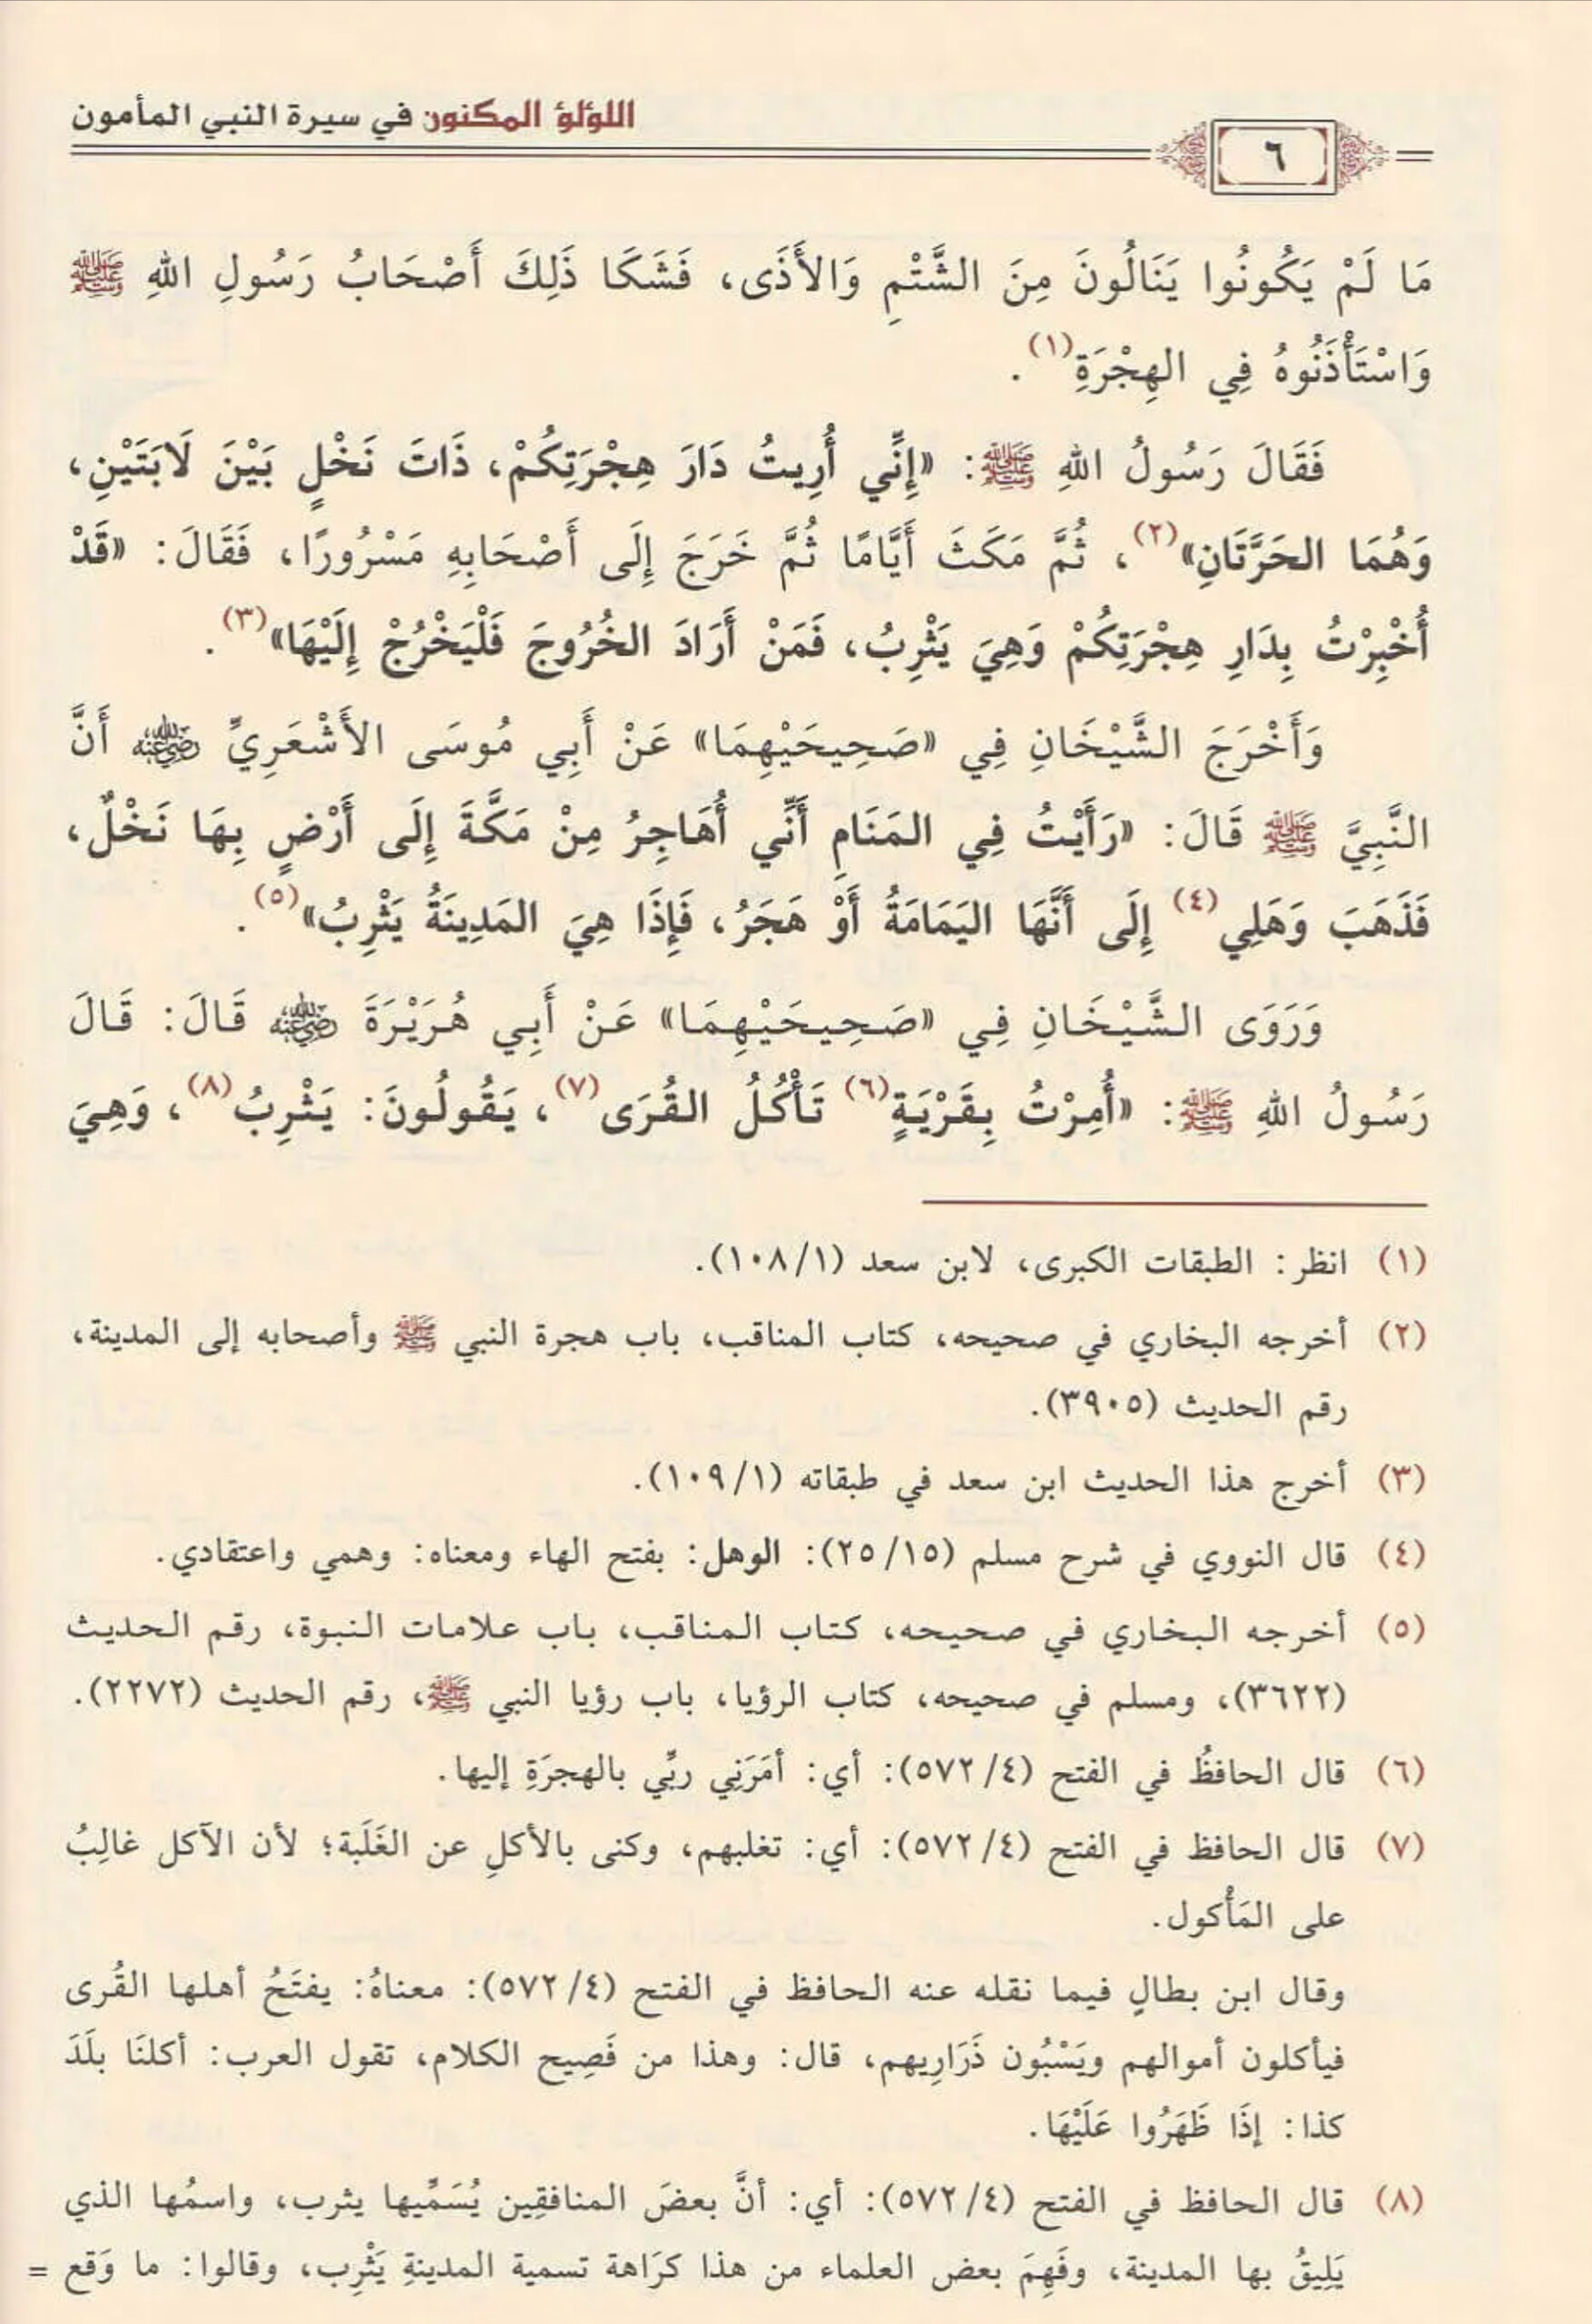 اللؤلؤ المكنون في سيرة النبي المأمون
٦
مَا لَمْ يَكُونُوا يَنَالُونَ مِنَ الشَّتْمِ وَالأَذَى، فَشَكَا ذَلِكَ أَصْحَابُ رَسُولِ اللهِ ﷺ
وَاسْتَأْذَنُوهُ فِي الهِجْرَةِ(١).
فَقَالَ رَسُولُ اللهِ ﷺ: «إِنِّي أُرِيتُ دَارَ هِجْرَتِكُمْ، ذَاتَ نَخْلٍ بَيْنَ لَابَتَيْنِ،
وَهُمَا الحَرَّتَانِ»(٢)، ثُمَّ مَكَثَ أَيَّامًا ثُمَّ خَرَجَ إِلَى أَصْحَابِهِ مَسْرُورًا، فَقَالَ: «قَدْ
أُخْبِرْتُ بِدَارِ هِجْرَتِكُمْ وَهِيَ يَثْرِبُ، فَمَنْ أَرَادَ الخُرُوجَ فَلْيَخْرُجْ إِلَيْهَا»(٣).
وَأَخْرَجَ الشَّيْخَانِ فِي «صَحِيحَيْهِمَا» عَنْ أَبِي مُوسَى الأَشْعَرِيِّ رضي الله عنه أَنَّ
النَّبِيَّ ﷺ قَالَ: «رَأَيْتُ فِي المَنَامِ أَنِّي أُهَاجِرُ مِنْ مَكَّةَ إِلَى أَرْضٍ بِهَا نَخْلٌ،
فَذَهَبَ وَهَلِي(٤) إِلَى أَنَّهَا اليَمَامَةُ أَوْ هَجَرُ، فَإِذَا هِيَ المَدِينَةُ يَثْرِبُ»(٥).
وَرَوَى الشَّيْخَانِ فِي «صَحِيحَيْهِمَا» عَنْ أَبِي هُرَيْرَةَ رضي الله عنه قَالَ: قَالَ
رَسُولُ اللهِ ﷺ: «أُمِرْتُ بِقَرْيَةٍ(٦) تَأْكُلُ القُرَى(٧)، يَقُولُونَ: يَثْرِبُ(٨)، وَهِيَ
(١) انظر: الطبقات الكبرى، لابن سعد (١٠٨/١).
(٢) أخرجه البخاري في صحيحه، كتاب المناقب، باب هجرة النبي ﷺ وأصحابه إلى المدينة،
رقم الحديث (٣٩٠٥).
(٣) أخرج هذا الحديث ابن سعد في طبقاته (١٠٩/١).
(٤) قال النووي في شرح مسلم (٢٥/١٥): الوهل: بفتح الهاء ومعناه: وهمي واعتقادي.
(٥) أخرجه البخاري في صحيحه، كتاب المناقب، باب علامات النبوة، رقم الحديث
(٣٦٢٢)، ومسلم في صحيحه، كتاب الرؤيا، باب رؤيا النبي ﷺ، رقم الحديث (٢٢٧٢).
(٦) قال الحافظُ في الفتح (٥٧٢/٤): أي: أمَرَنِي ربِّي بالهجرَةِ إليها.
(٧) قال الحافظ في الفتح (٥٧٢/٤): أي: تغلبهم، وكنى بالأكلِ عن الغَلَبة؛ لأن الآكل غالِبُ
على المَأْكول.
وقال ابن بطالٍ فيما نقله عنه الحافظ في الفتح (٥٧٢/٤): معناهُ: يفتَحُ أهلها القُرى
فيأكلون أموالهم ويَسْبُون ذَرَارِيهم، قال: وهذا من فَصِيح الكلام، تقول العرب: أكلنَا بلَدَ
كذا: إذَا ظَهَرُوا عَلَيْهَا.
(٨) قال الحافظ في الفتح (٥٧٢/٤): أي: أنَّ بعضَ المنافقِين يُسَمِّيها يثرب، واسمُها الذي
يَلِيقُ بها المدينة، وفَهِمَ بعض العلماء من هذا كرَاهة تسمية المدينةِ يَثْرِب، وقالوا: ما وَقع =